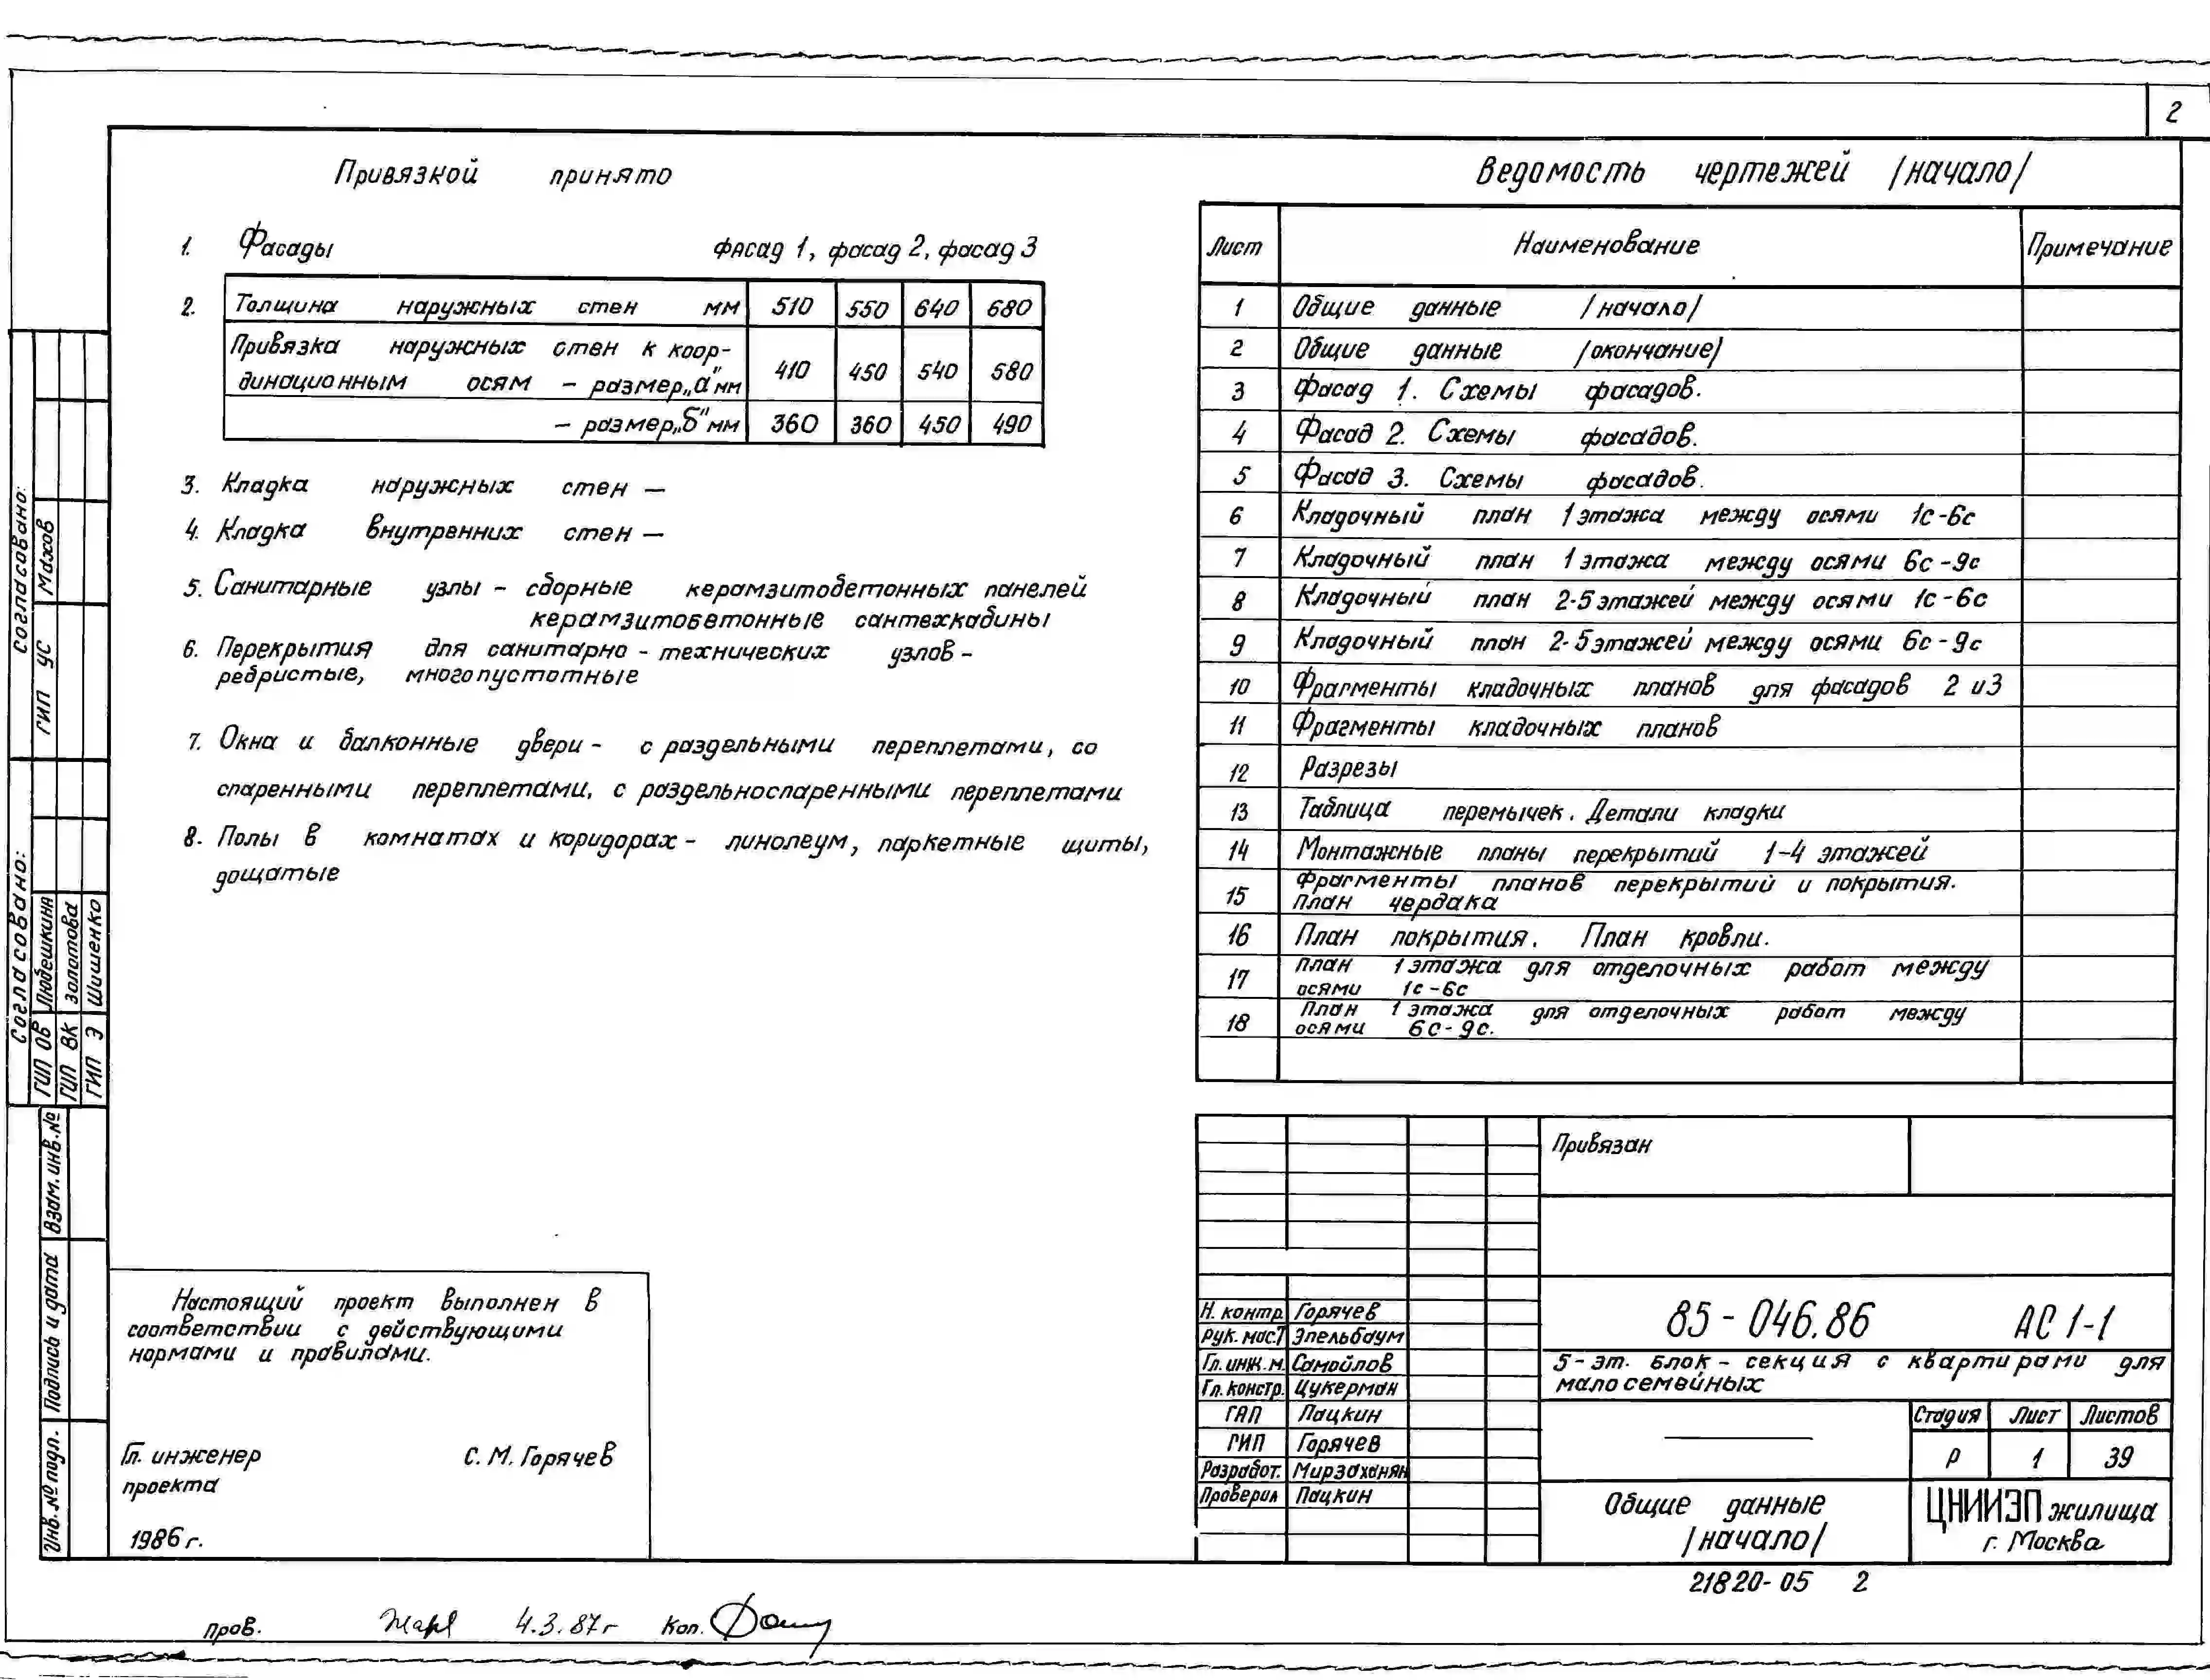 2
Привязкой принято
1. Фасады фасад 1, фасад 2, фасад 3
2. Толщина наружных стен мм 510 550 640 680
Привязка наружных стен к коор-
динационным осям – размер „а" мм 410 450 540 580
– размер „б" мм 360 360 450 490
3. Кладка наружных стен –
4. Кладка внутренних стен –
5. Санитарные узлы – сборные керамзитобетонных панелей
керамзитобетонные сантехкабины
6. Перекрытия для санитарно - технических узлов -
ребристые, многопустотные
7. Окна и балконные двери - с раздельными переплетами, со
спаренными переплетами, с раздельноспаренными переплетами
8. Полы в комнатах и коридорах - линолеум, паркетные щиты,
дощатые
Настоящий проект выполнен в
соответствии с действующими
нормами и правилами.
Гл. инженер С. М. Горячев
проекта
1986 г.
Ведомость чертежей /начало/
Лист Наименование Примечание
1 Общие данные /начало/
2 Общие данные /окончание/
3 Фасад 1. Схемы фасадов.
4 Фасад 2. Схемы фасадов.
5 Фасад 3. Схемы фасадов.
6 Кладочный план 1 этажа между осями 1с-6с
7 Кладочный план 1 этажа между осями 6с-9с
8 Кладочный план 2-5 этажей между осями 1с-6с
9 Кладочный план 2-5 этажей между осями 6с-9с
10 Фрагменты кладочных планов для фасадов 2 и 3
11 Фрагменты кладочных планов
12 Разрезы
13 Таблица перемычек. Детали кладки
14 Монтажные планы перекрытий 1-4 этажей
15 Фрагменты планов перекрытий и покрытия.
План чердака
16 План покрытия. План кровли.
17 План 1 этажа для отделочных работ между
осями 1с-6с
18 План 1 этажа для отделочных работ между
осями 6с-9с.
Привязан
Н. контр. Горячев
Рук. мас.Т Эпельбаум
Гл. инж. м. Самойлов
Гл. констр. Цукерман
ГАП Пацкин
ГИП Горячев
Разработ. Мирзаханян
Проверил Пацкин
85-046.86 АС 1-1
5-эт. блок-секция с квартирами для
малосемейных
Стадия Лист Листов
Р 1 39
Общие данные
/начало/
ЦНИИЭП жилища
г. Москва
21820-05 2
Согласовано:
ГИП УС Махов
Согласовано:
ГИП ОВ Любешкина
ГИП ВК Золотова
ГИП Э Шишенко
Взам. инв. №
Подпись и дата
Инв. № подл.
пров. 4.3.87г Коп.